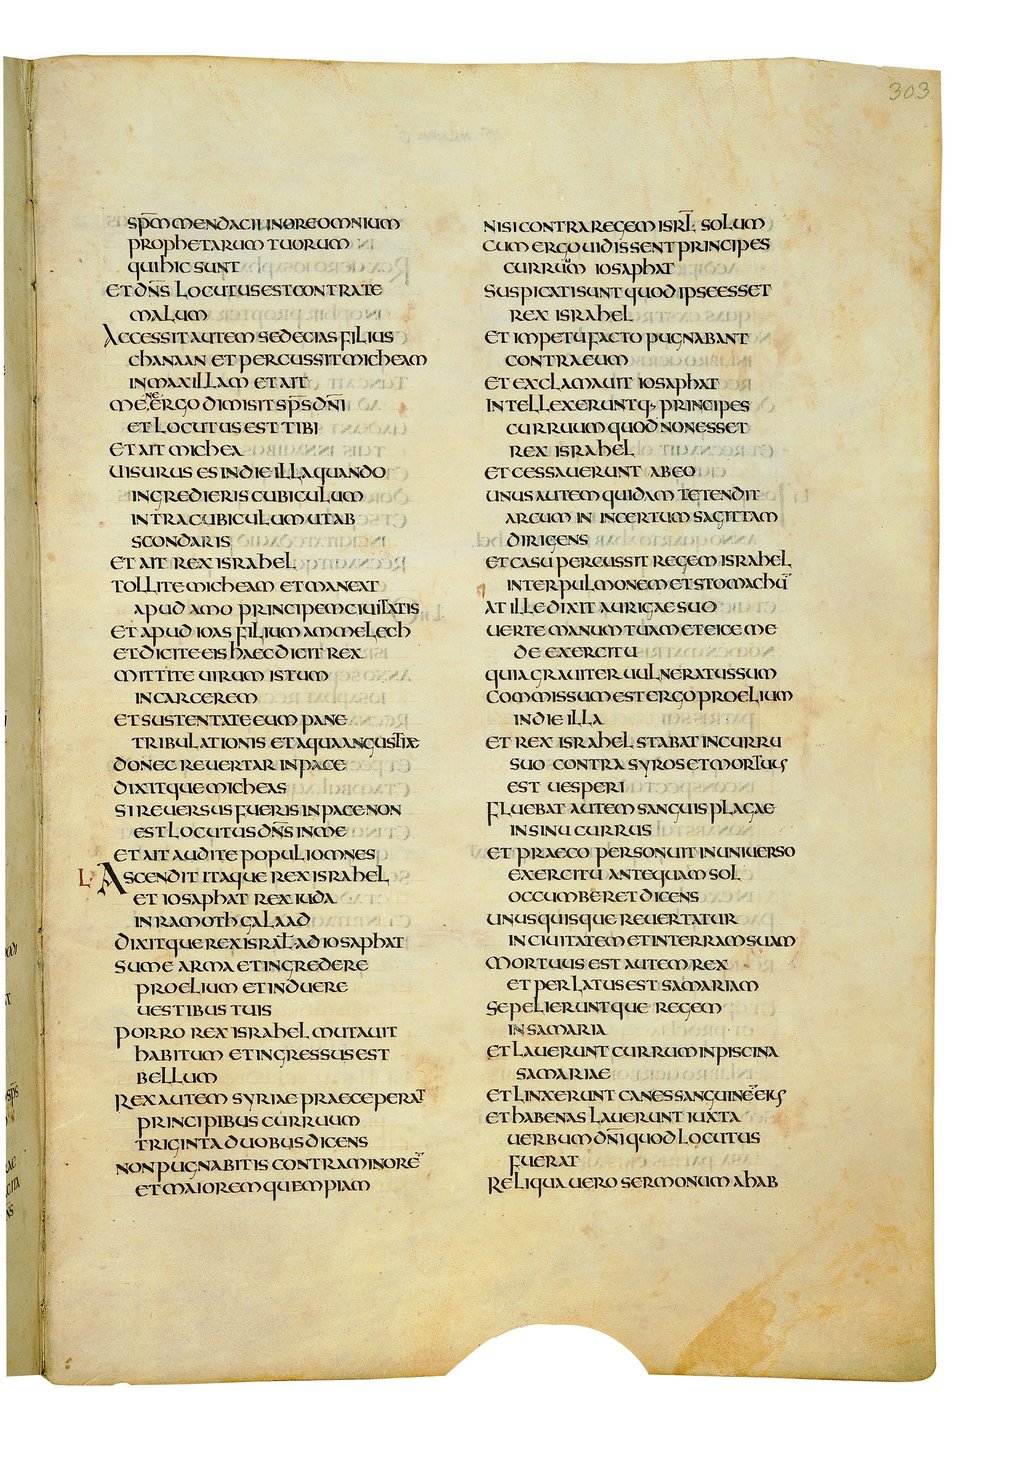 303
SP̅M MENDACII IN ORE OMNIUM
PROPHETARUM TUORUM
QUI HIC SUNT
ET DN̅S LOCUTUS EST CONTRA TE
MALUM
ACCESSIT AUTEM SEDECIAS FILIUS
CHANAAN ET PERCUSSIT MICHEAM
IN MAXILLAM ET AIT
MENE ERGO DIMISIT SP̅S DN̅I
ET LOCUTUS EST TIBI
ET AIT MICHEA
UISURUS ES IN DIE ILLA QUANDO
INGREDIERIS CUBICULUM
INTRA CUBICULUM UT AB
SCONDARIS
ET AIT REX ISRAHEL
TOLLITE MICHEAM ET MANEAT
APUD AMO PRINCIPEM CIUITATIS
ET APUD IOAS FILIUM AMMELECH
ET DICITE EIS HAEC DICIT REX
MITTITE UIRUM ISTUM
IN CARCEREM
ET SUSTENTATE EUM PANE
TRIBULATIONIS ET AQUA ANGUSTIAE
DONEC REUERTAR IN PACE
DIXITQUE MICHEAS
SI REUERSUS FUERIS IN PACE NON
EST LOCUTUS DN̅S IN ME
ET AIT AUDITE POPULI OMNES
L ASCENDIT ITAQUE REX ISRAHEL
ET IOSAPHAT REX IUDA
IN RAMOTH GALAAD
DIXITQUE REX ISRA̅L AD IOSAPHAT
SUME ARMA ET INGREDERE
PROELIUM ET INDUERE
UESTIBUS TUIS
PORRO REX ISRAHEL MUTAUIT
HABITUM ET INGRESSUS EST
BELLUM
REX AUTEM SYRIAE PRAECEPERAT
PRINCIPIBUS CURRUUM
TRIGINTA DUOBUS DICENS
NON PUGNABITIS CONTRA MINORE̅
ET MAIOREM QUEMPIAM
NISI CONTRA REGEM ISRL̅ SOLUM
CUM ERGO UIDISSENT PRINCIPES
CURRUUM IOSAPHAT
SUSPICATI SUNT QUOD IPSE ESSET
REX ISRAHEL
ET IMPETU FACTO PUGNABANT
CONTRA EUM
ET EXCLAMAUIT IOSAPHAT
INTELLEXERUNTQ· PRINCIPES
CURRUUM QUOD NON ESSET
REX ISRAHEL
ET CESSAUERUNT AB EO
UNUS AUTEM QUIDAM TETENDIT
ARCUM IN INCERTUM SAGITTAM
DIRIGENS
ET CASU PERCUSSIT REGEM ISRAHEL
INTER PULMONEM ET STOMACHU̅
AT ILLE DIXIT AURIGAE SUO
UERTE MANUM TUAM ET EICE ME
DE EXERCITU
QUIA GRAUITER UULNERATUS SUM
COMMISSUM EST ERGO PROELIUM
IN DIE ILLA
ET REX ISRAHEL STABAT IN CURRU
SUO CONTRA SYROS ET MORTUUS
EST UESPERI
FLUEBAT AUTEM SANGUIS PLAGAE
IN SINU CURRUS
ET PRAECO PERSONUIT IN UNIUERSO
EXERCITU ANTEQUAM SOL
OCCUMBERET DICENS
UNUSQUISQUE REUERTATUR
IN CIUITATEM ET IN TERRAM SUAM
MORTUUS EST AUTEM REX
ET PERLATUS EST SAMARIAM
SEPELIERUNTQUE REGEM
IN SAMARIA
ET LAUERUNT CURRUM IN PISCINA
SAMARIAE
ET LINXERUNT CANES SANGUINE̅ EIUS
ET HABENAS LAUERUNT IUXTA
UERBUM DN̅I QUOD LOCUTUS
FUERAT
RELIQUA UERO SERMONUM AHAB